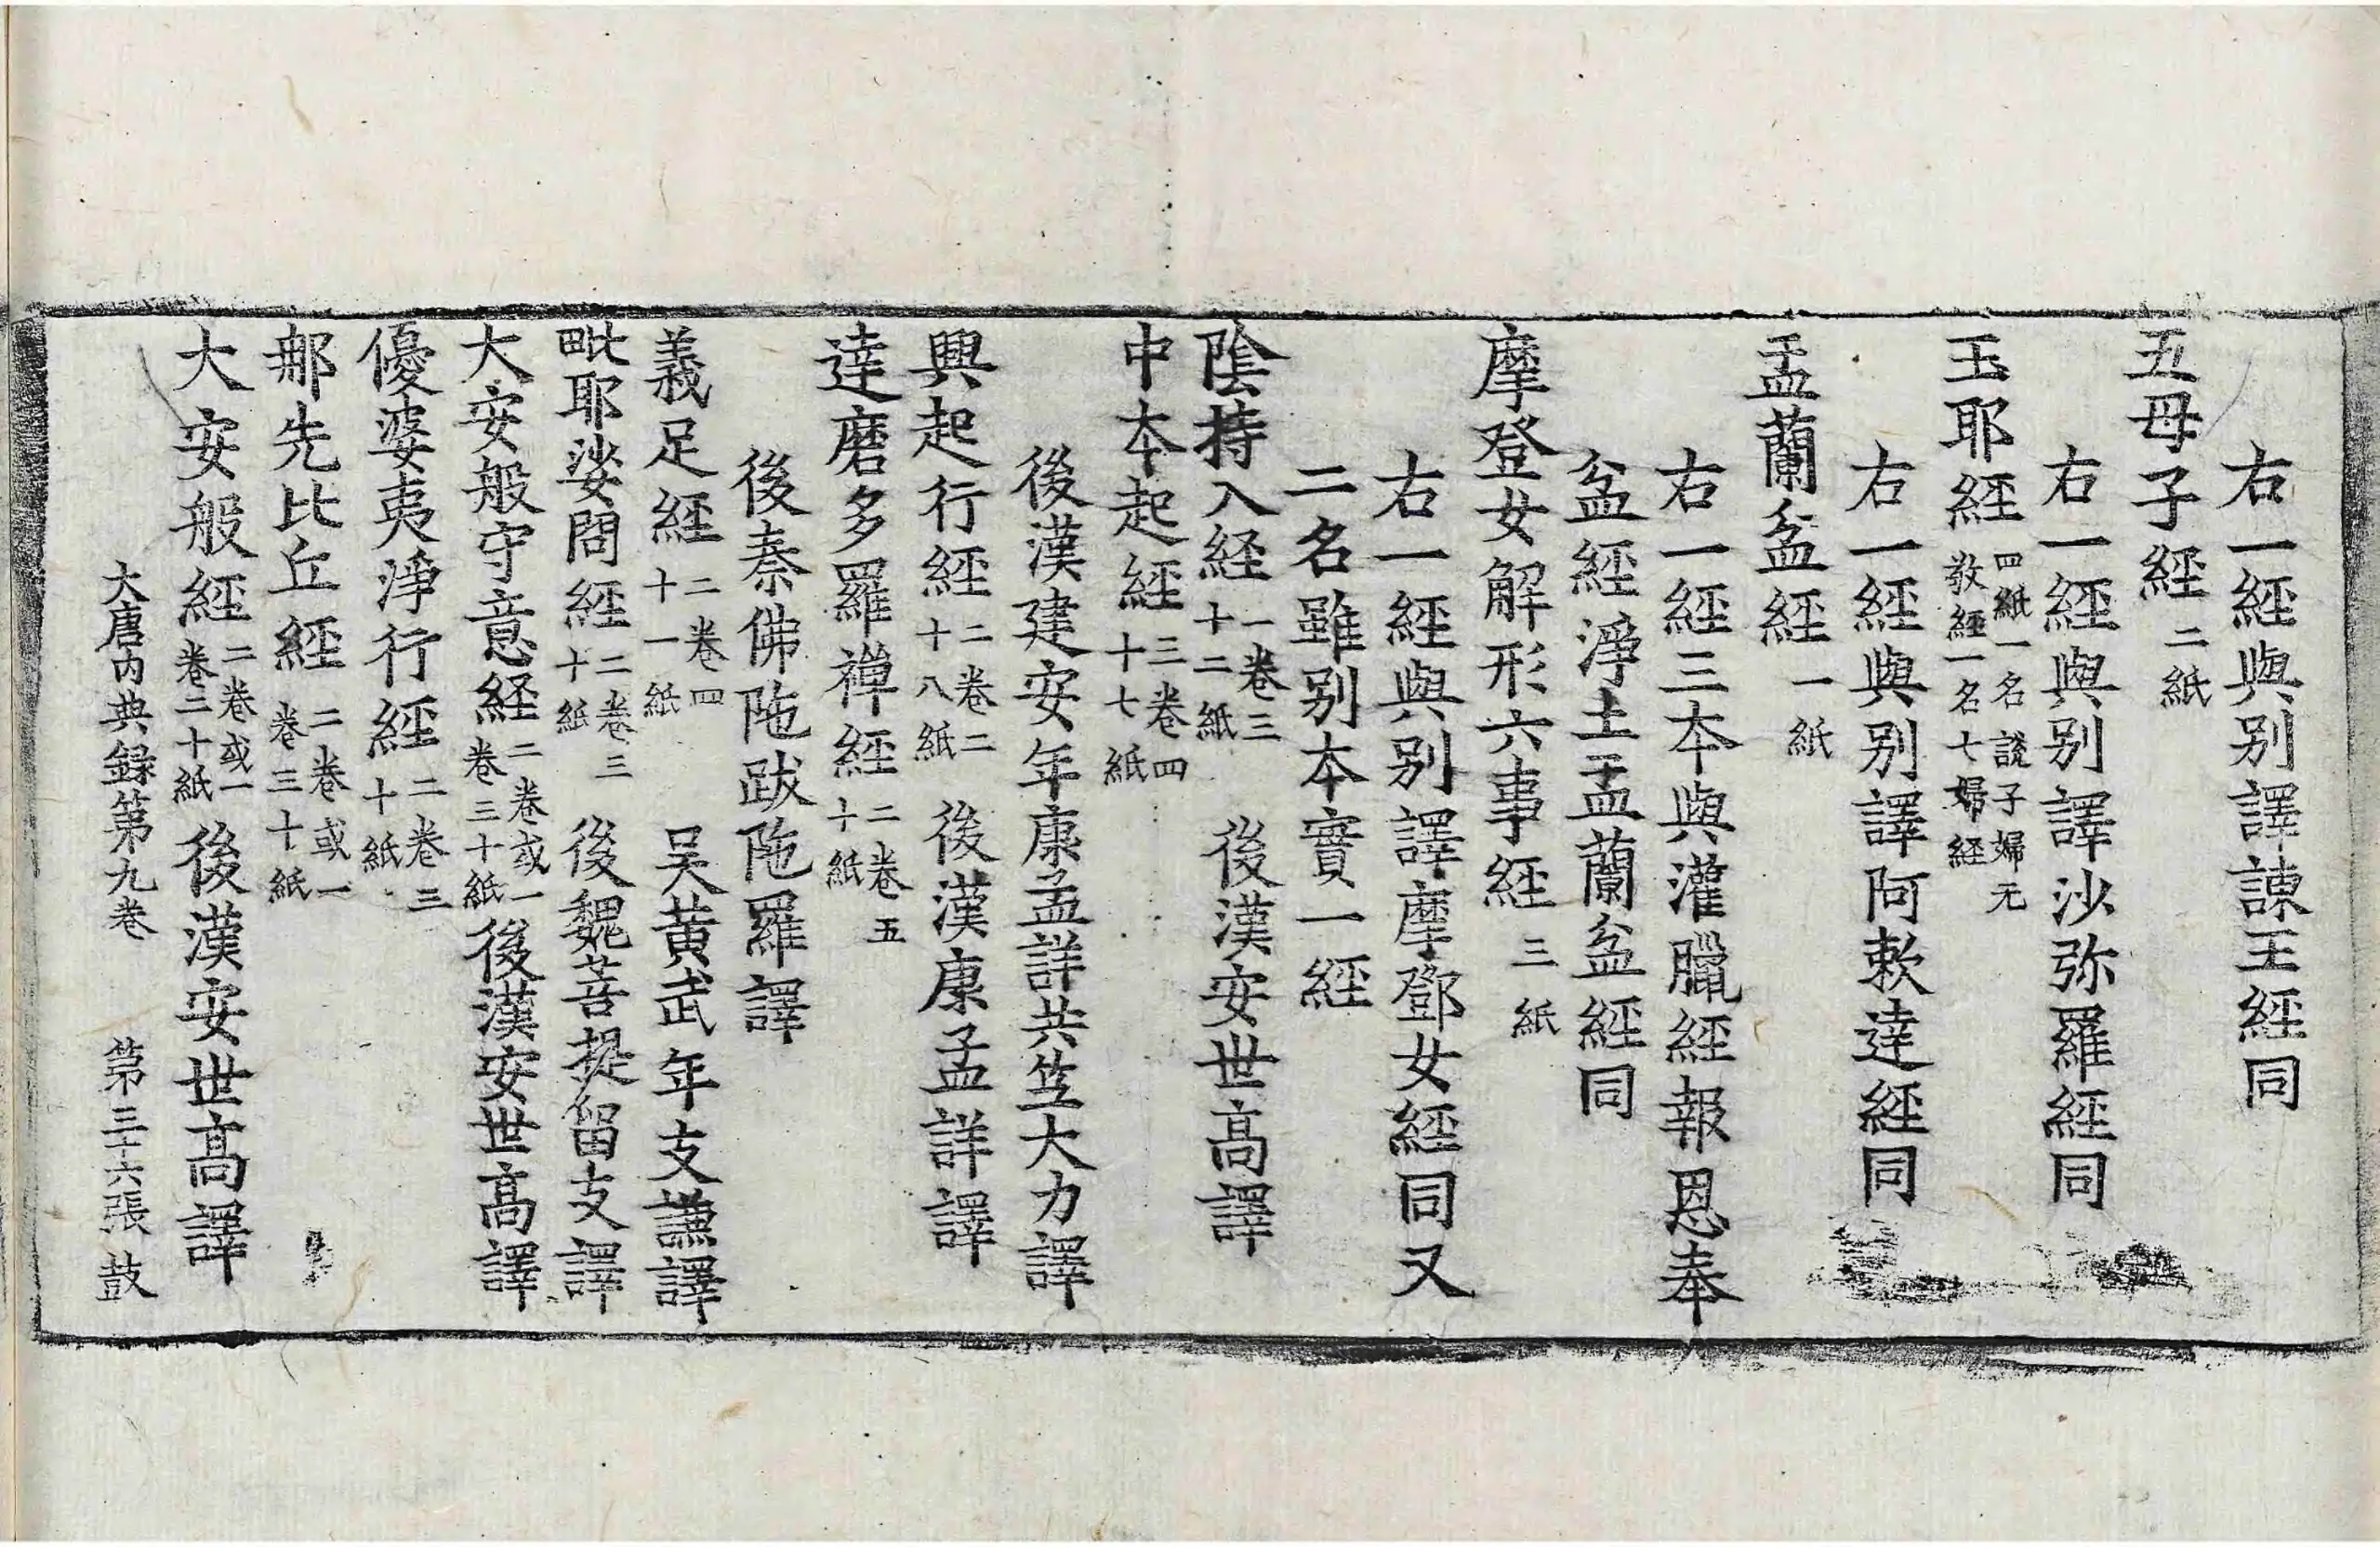 右一經與别譯諫王經同
五母子經二紙
右一經與别譯沙弥羅經同
玉耶経四紙一名說子婦无敎經一名七婦経
右一經與别譯阿䣛達經同
盂蘭盆經一紙
右一經三本與灌臘經報恩奉
盆經淨土盂蘭盆經同
摩登女解形六事経三紙
右一經與别譯摩鄧女經同又
二名雖别本實一経
陰持入経一卷三十二紙後漢安世高譯
中本起經三卷四十七紙
後漢建安年康孟詳共竺大力譯
興起行經二卷二十八紙後漢康孟詳譯
達磨多羅禪經二卷五十紙
後秦佛陁跋陁羅譯
義足經二卷四十一紙吴黃武年支謙譯
毗耶娑問經二卷三十紙後魏菩提留支譯
大安般守意経二卷或一卷三十紙後漢安世高譯
優婆夷淨行經二卷三十紙
那先比丘經二卷或一卷三十紙
大安般經二卷或一卷二十紙後漢安世高譯
大唐内典録第九卷　第三十六張　鼓